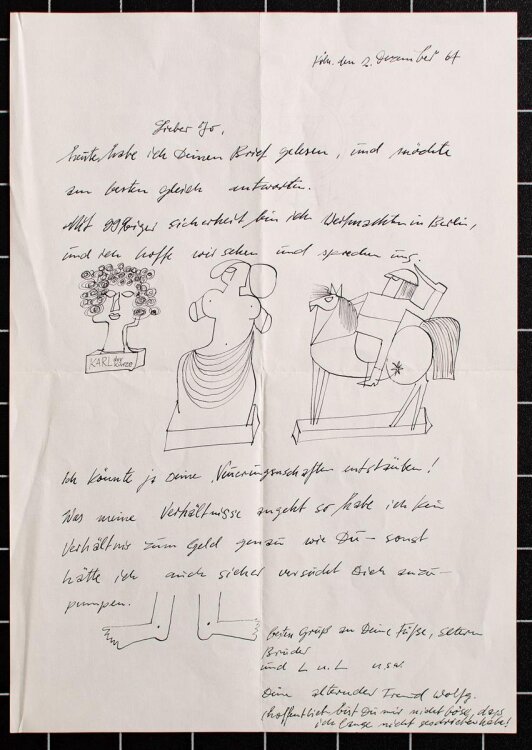 Köln. den 2. Dezember 64
Lieber Jo,
heute habe ich Deinen Brief gelesen, und möchte
am besten gleich antworten.
Mit 99%iger sicherheit bin ich Weihnachten in Berlin,
und ich hoffe wir sehen und sprechen uns.
KARL der KURZE
Ich könnte ja Deine Neuerungenschaften entstauben!
Was meine Verhältnisse angeht so habe ich kein
Verhältnis zum Geld genau wie Du – sonst
hätte ich auch sicher versucht Dich anzu-
pumpen.
besten Gruß an Deine Füße, Eltern
Brüder
und L u. L usw.
Dein alternder Freund Wolfg.
(hoffentlich bist Du mir nicht böse, dass
ich lange nicht geschrieben habe!